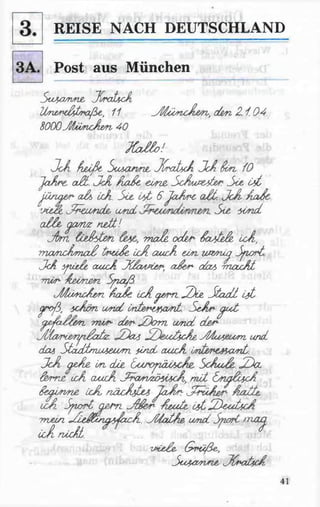 3. REISE NACH DEUTSCHLAND
3A. Post aus München
Susanne Kratsch
Unereslstraße, 11 München, den 2.1.04.
8000 München 40
Hallo!
Ich heiße Susanne Kratsch. Ich bin 10
Jahre alt. Ich habe eine Schwester. Sie ist
jünger als ich. Sie ist 6 Jahre alt. Ich habe
viele Freunde und Freundinnen. Sie sind
alle ganz nett!
Am liebsten lese, male oder bastele ich,
manchmal treibe ich auch ein wenig Sport.
Ich spiele auch Klavier, aber das macht
mir keinen Spaß.
München habe ich gern. Die Stadt ist
groß, schön und interessant. Sehr gut
gefallen mir der Dom und der
Marienplatz. Das Deutsche Museum und
das Stadtmuseum sind auch interessant.
Ich gehe in die Europäische Schule. Da
lerne ich auch Französisch, mit Englisch
beginne ich nächstes Jahr. Früher hatte
ich Sport gern. Aber heute ist Deutsch
mein Lieblingsfach. Mathe und Sport mag
ich nicht.
viele Grüße,
Susanne Kratsch
41